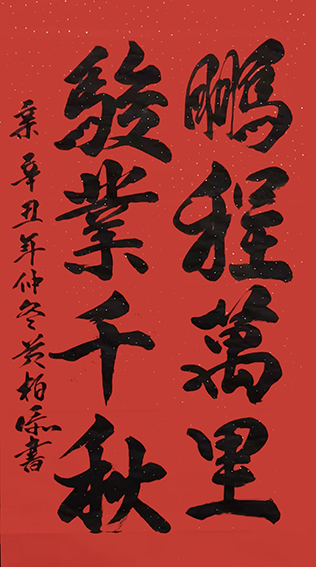 鵬程萬里
駿業千秋
辛丑年仲冬黃柏添書